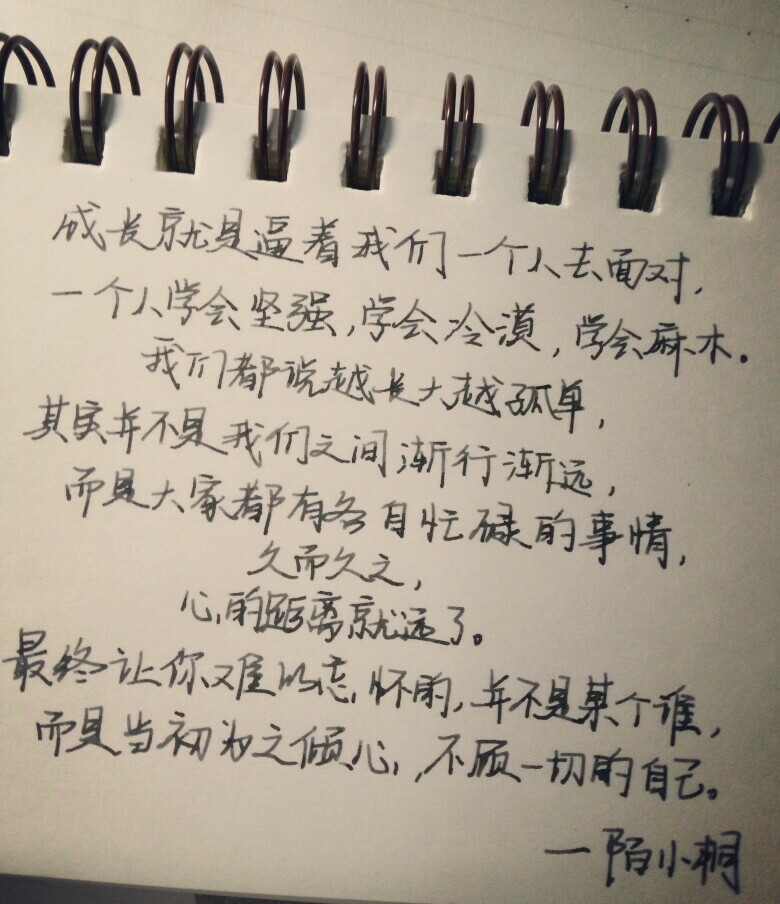 成长就是逼着我们一个人去面对，
一个人学会坚强，学会冷漠，学会麻木。
我们都说越长大越孤单，
其实并不是我们之间渐行渐远，
而是大家都有各自忙碌的事情，
久而久之，
心的距离就远了。
最终让你难以忘怀的，并不是某个谁，
而是当初为之倾心，不顾一切的自己。
一陌小桐